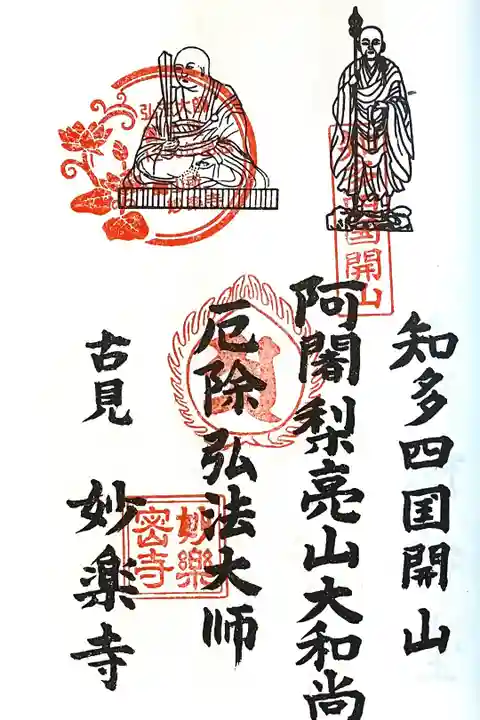 知多四国開山
阿闍梨亮山大和尚
厄除弘法大师
古見 妙楽寺
弘法大師
国開山
妙樂
密寺